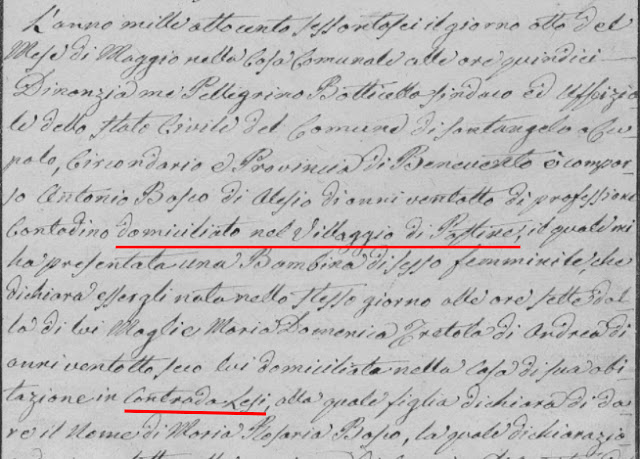 L'anno mille ottocento sessantasei il giorno otto del
Mese di Maggio nella Casa Comunale alle ore quindici
Dinanzia me Pellegrino Botticella sindaco ed Uffizia
le dello Stato Civile del Comune di Santangelo a Cu
polo, Circondario e Provincia di Benevento è compar
so Antonio Bosco di Alesio di anni ventotto di professione
Contadino domiciliato nel Villaggio di Pastine, il quale mi
ha presentata una Bambina di sesso femminile, che
dichiara essergli nata nello stesso giorno alle ore sette dal
la di lui Moglie Maria Domenica Tretola di Andrea di
anni ventotto seco lui domiciliata nella Casa di sua abi
tazione in Contrada Lesi, alla quale figlia dichiara di da
re il Nome di Maria Rosaria Bosco, la quale dichiarazio